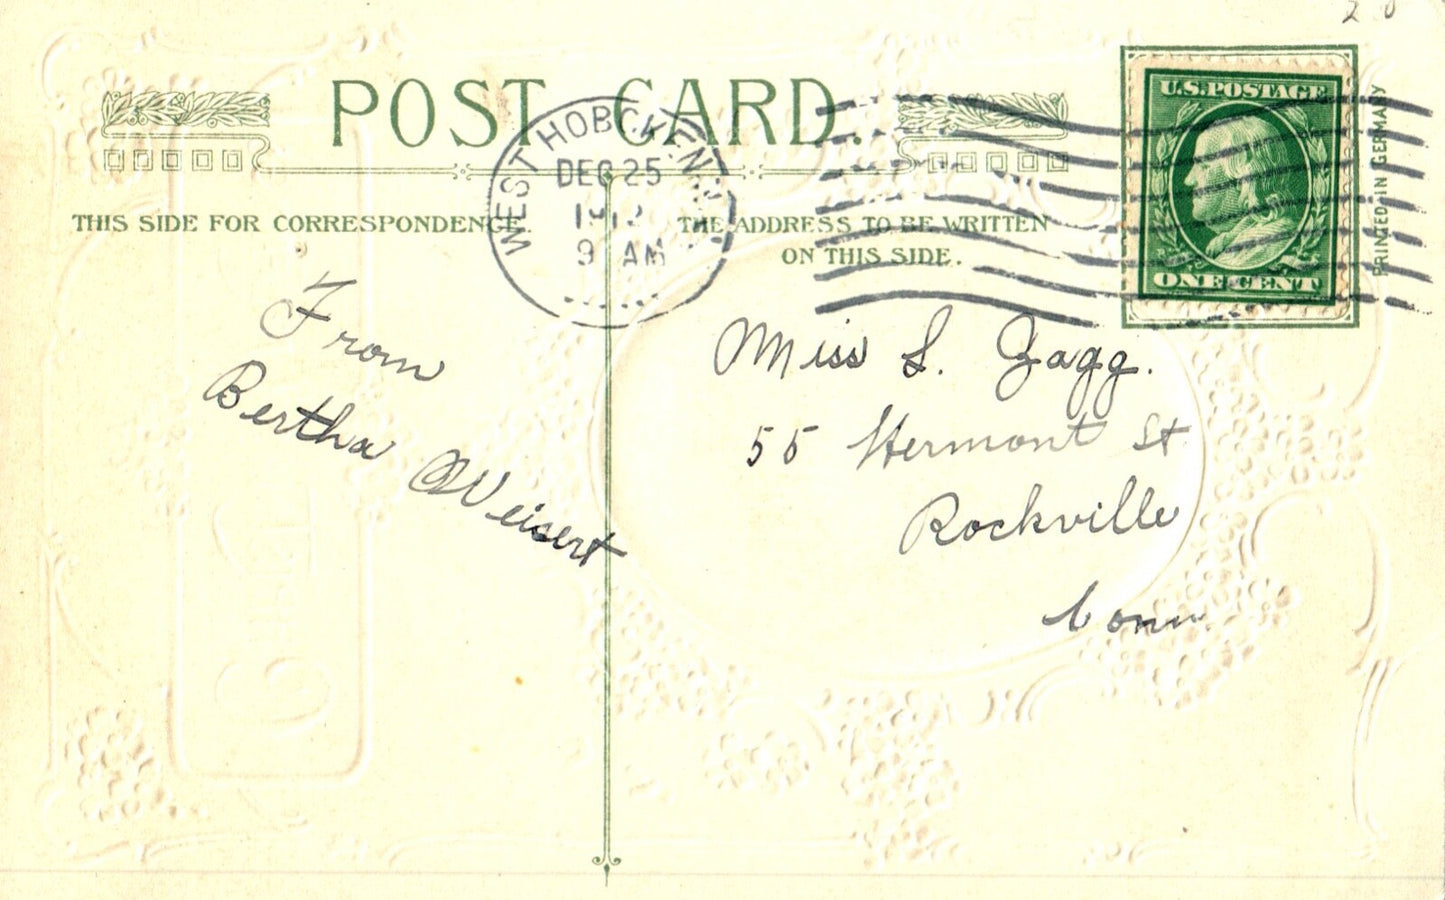 20
POST CARD.
WEST HOBOKEN, N.J.
DEC 25
1912
9 AM
U.S. POSTAGE
ONE CENT
PRINTED IN GERMANY
THIS SIDE FOR CORRESPONDENCE.
THE ADDRESS TO BE WRITTEN
ON THIS SIDE.
From
Bertha Weisert
Miss L. Zagg.
55 Vermont St
Rockville
Conn